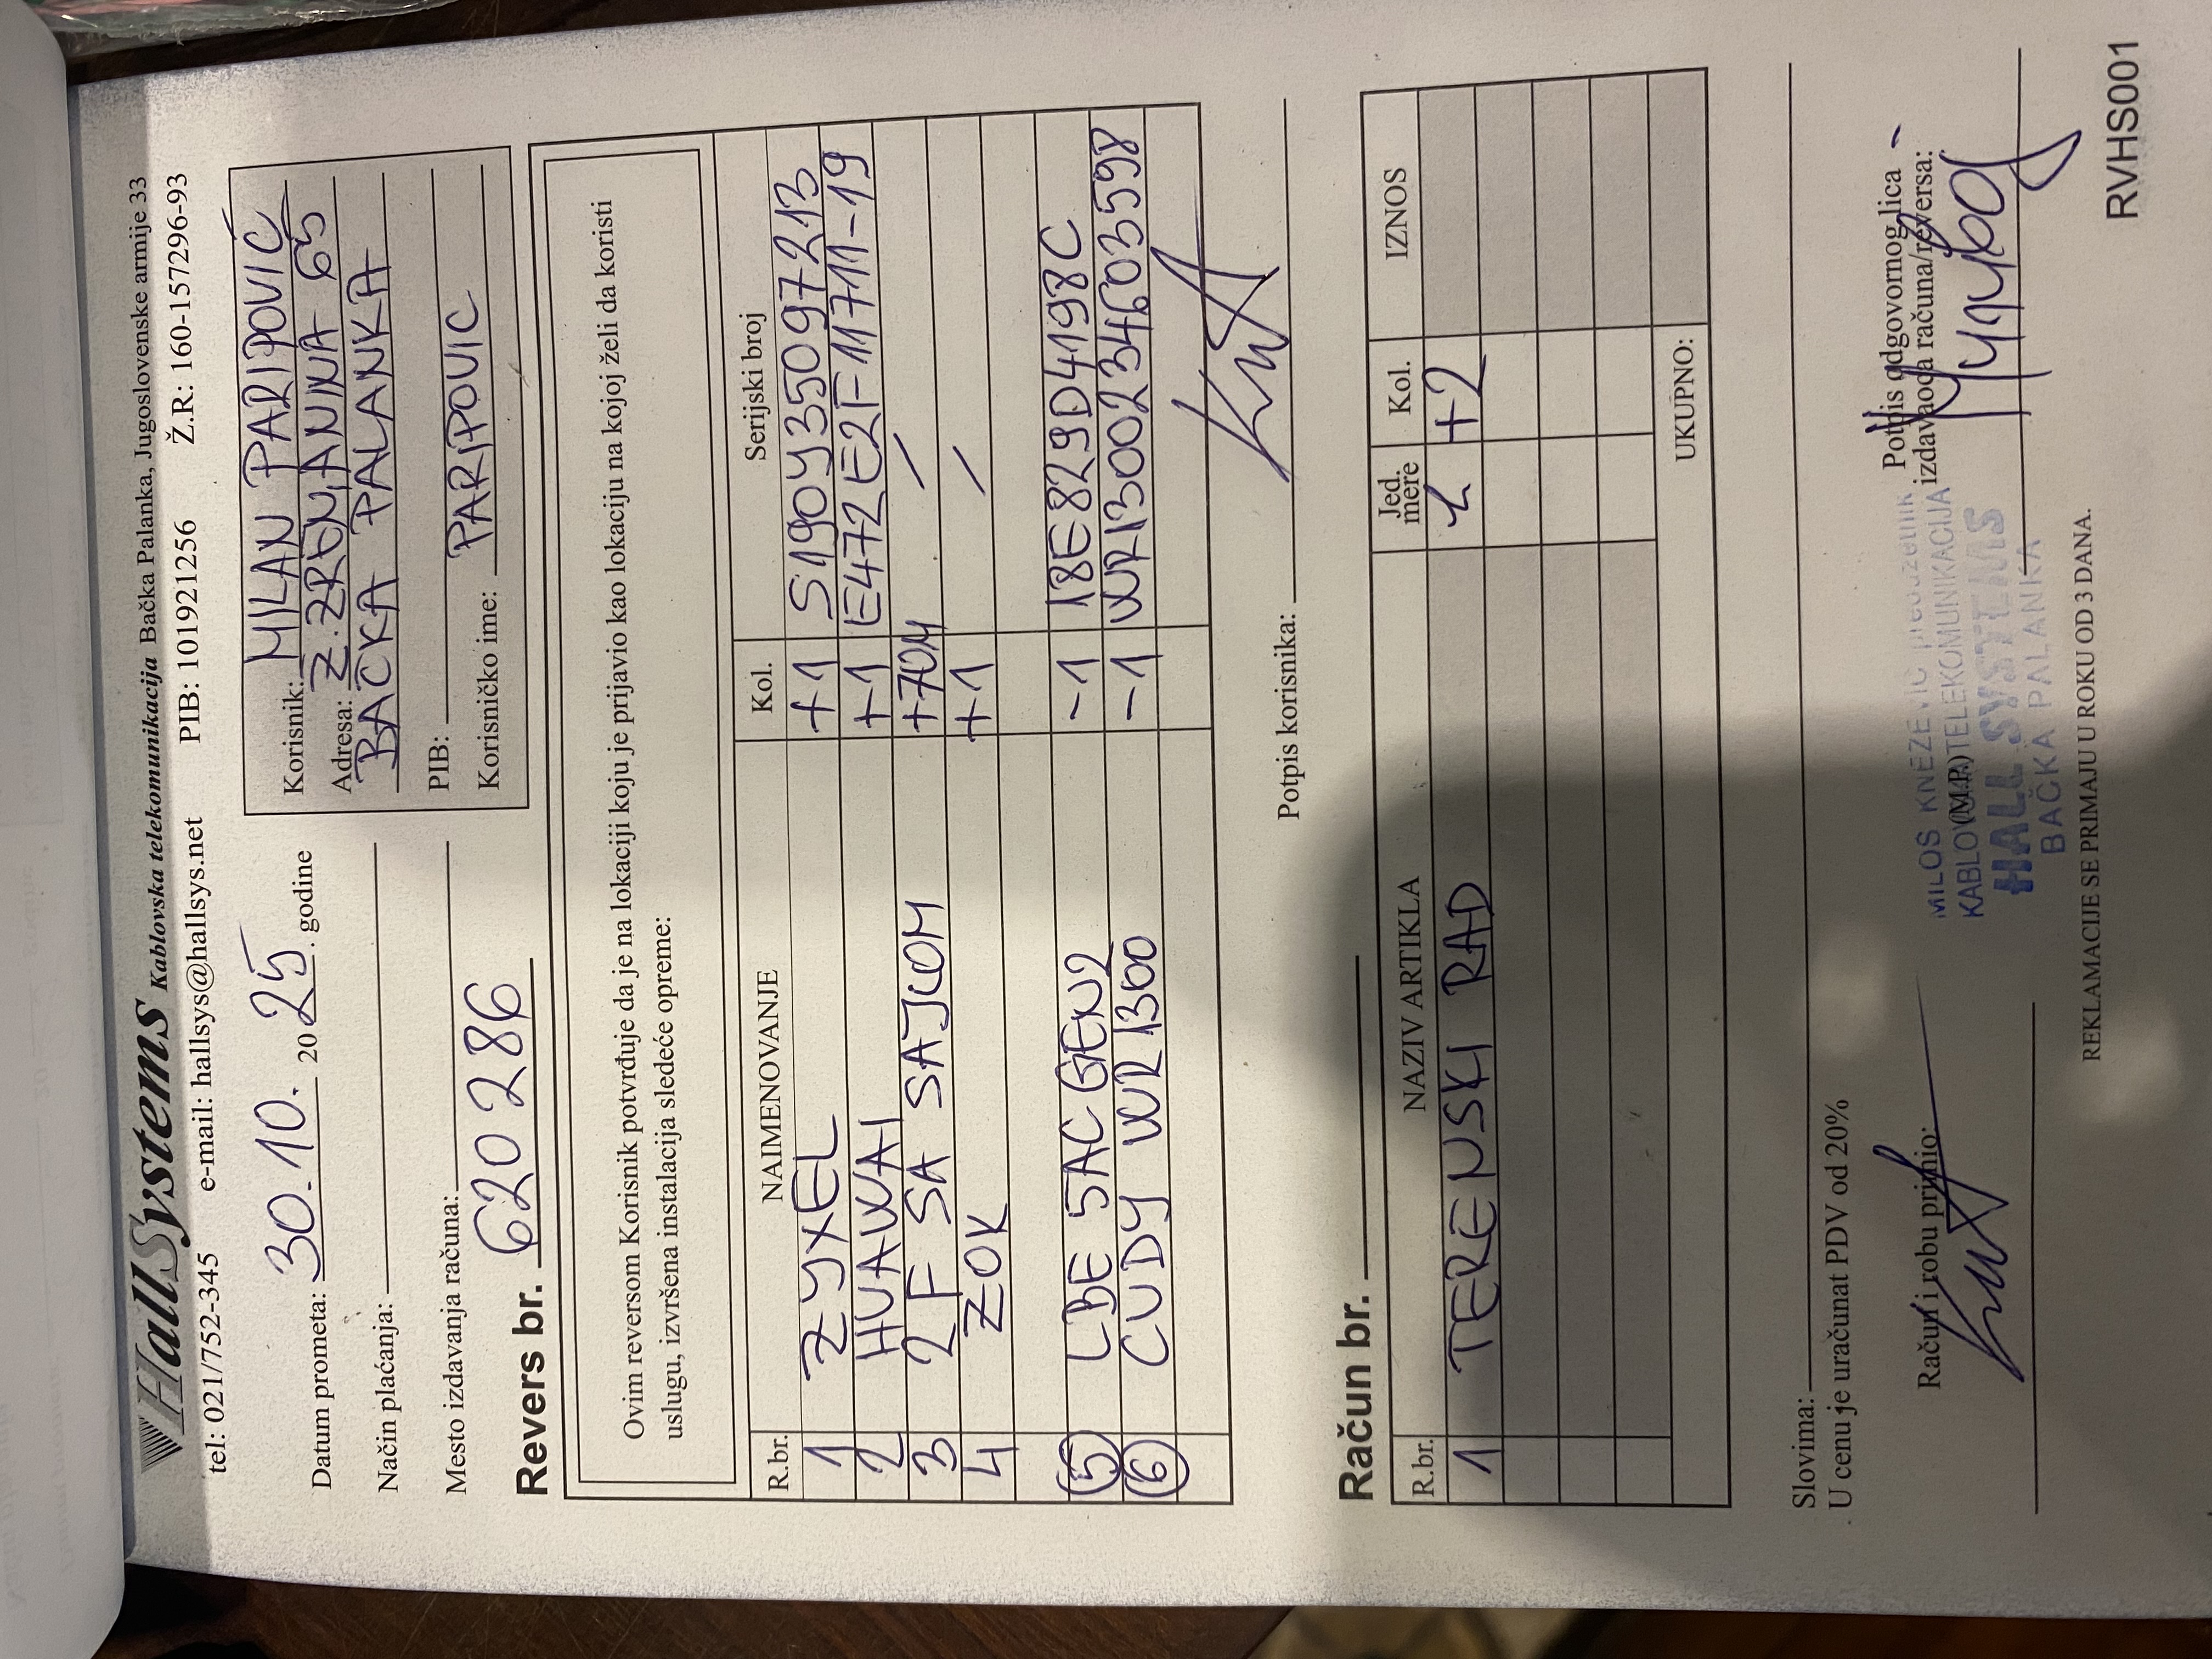 HallSystems Kablovska telekomunikacija Bačka Palanka, Jugoslovenske armije 33
tel: 021/752-345 e-mail: hallsys@hallsys.net PIB: 101921256 Ž.R: 160-157296-93
Datum prometa: 30.10. 2025. godine
Način plaćanja:
Mesto izdavanja računa:
Korisnik: MILAN PARIPOVIĆ
Adresa: Z. ZRENJANINA 65
BAČKA PALANKA
PIB:
Korisničko ime: PARIPOVIC
Revers br. 620286
Ovim reversom Korisnik potvrđuje da je na lokaciji koju je prijavio kao lokaciju na kojoj želi da koristi
uslugu, izvršena instalacija sledeće opreme:
R.br. NAIMENOVANJE Kol. Serijski broj
1 ZYXEL +1 S190Y35097213
2 HUAWAI +1 E472E2F-11711-19
3 2F SA SAJLOM +70M /
4 ZOK +1 /
5 LBE 5AC GEN2 -1 18E829D4198C
6 CUDY WR1300 -1 WR1300234603598
Potpis korisnika:
Račun br.
R.br. NAZIV ARTIKLA Jed. mere Kol. IZNOS
1 TERENSKI RAD h +2
UKUPNO:
Slovima:
U cenu je uračunat PDV od 20%
Račun i robu primio:
(M.P.)
MILOS KNEZEVIC preduzetnik
KABLOVSKA TELEKOMUNIKACIJA
HALL SYSTEMS
BAČKA PALANKA
Potpis odgovornog lica
izdavaoca računa/reversa:
REKLAMACIJE SE PRIMAJU U ROKU OD 3 DANA.
RVHS001